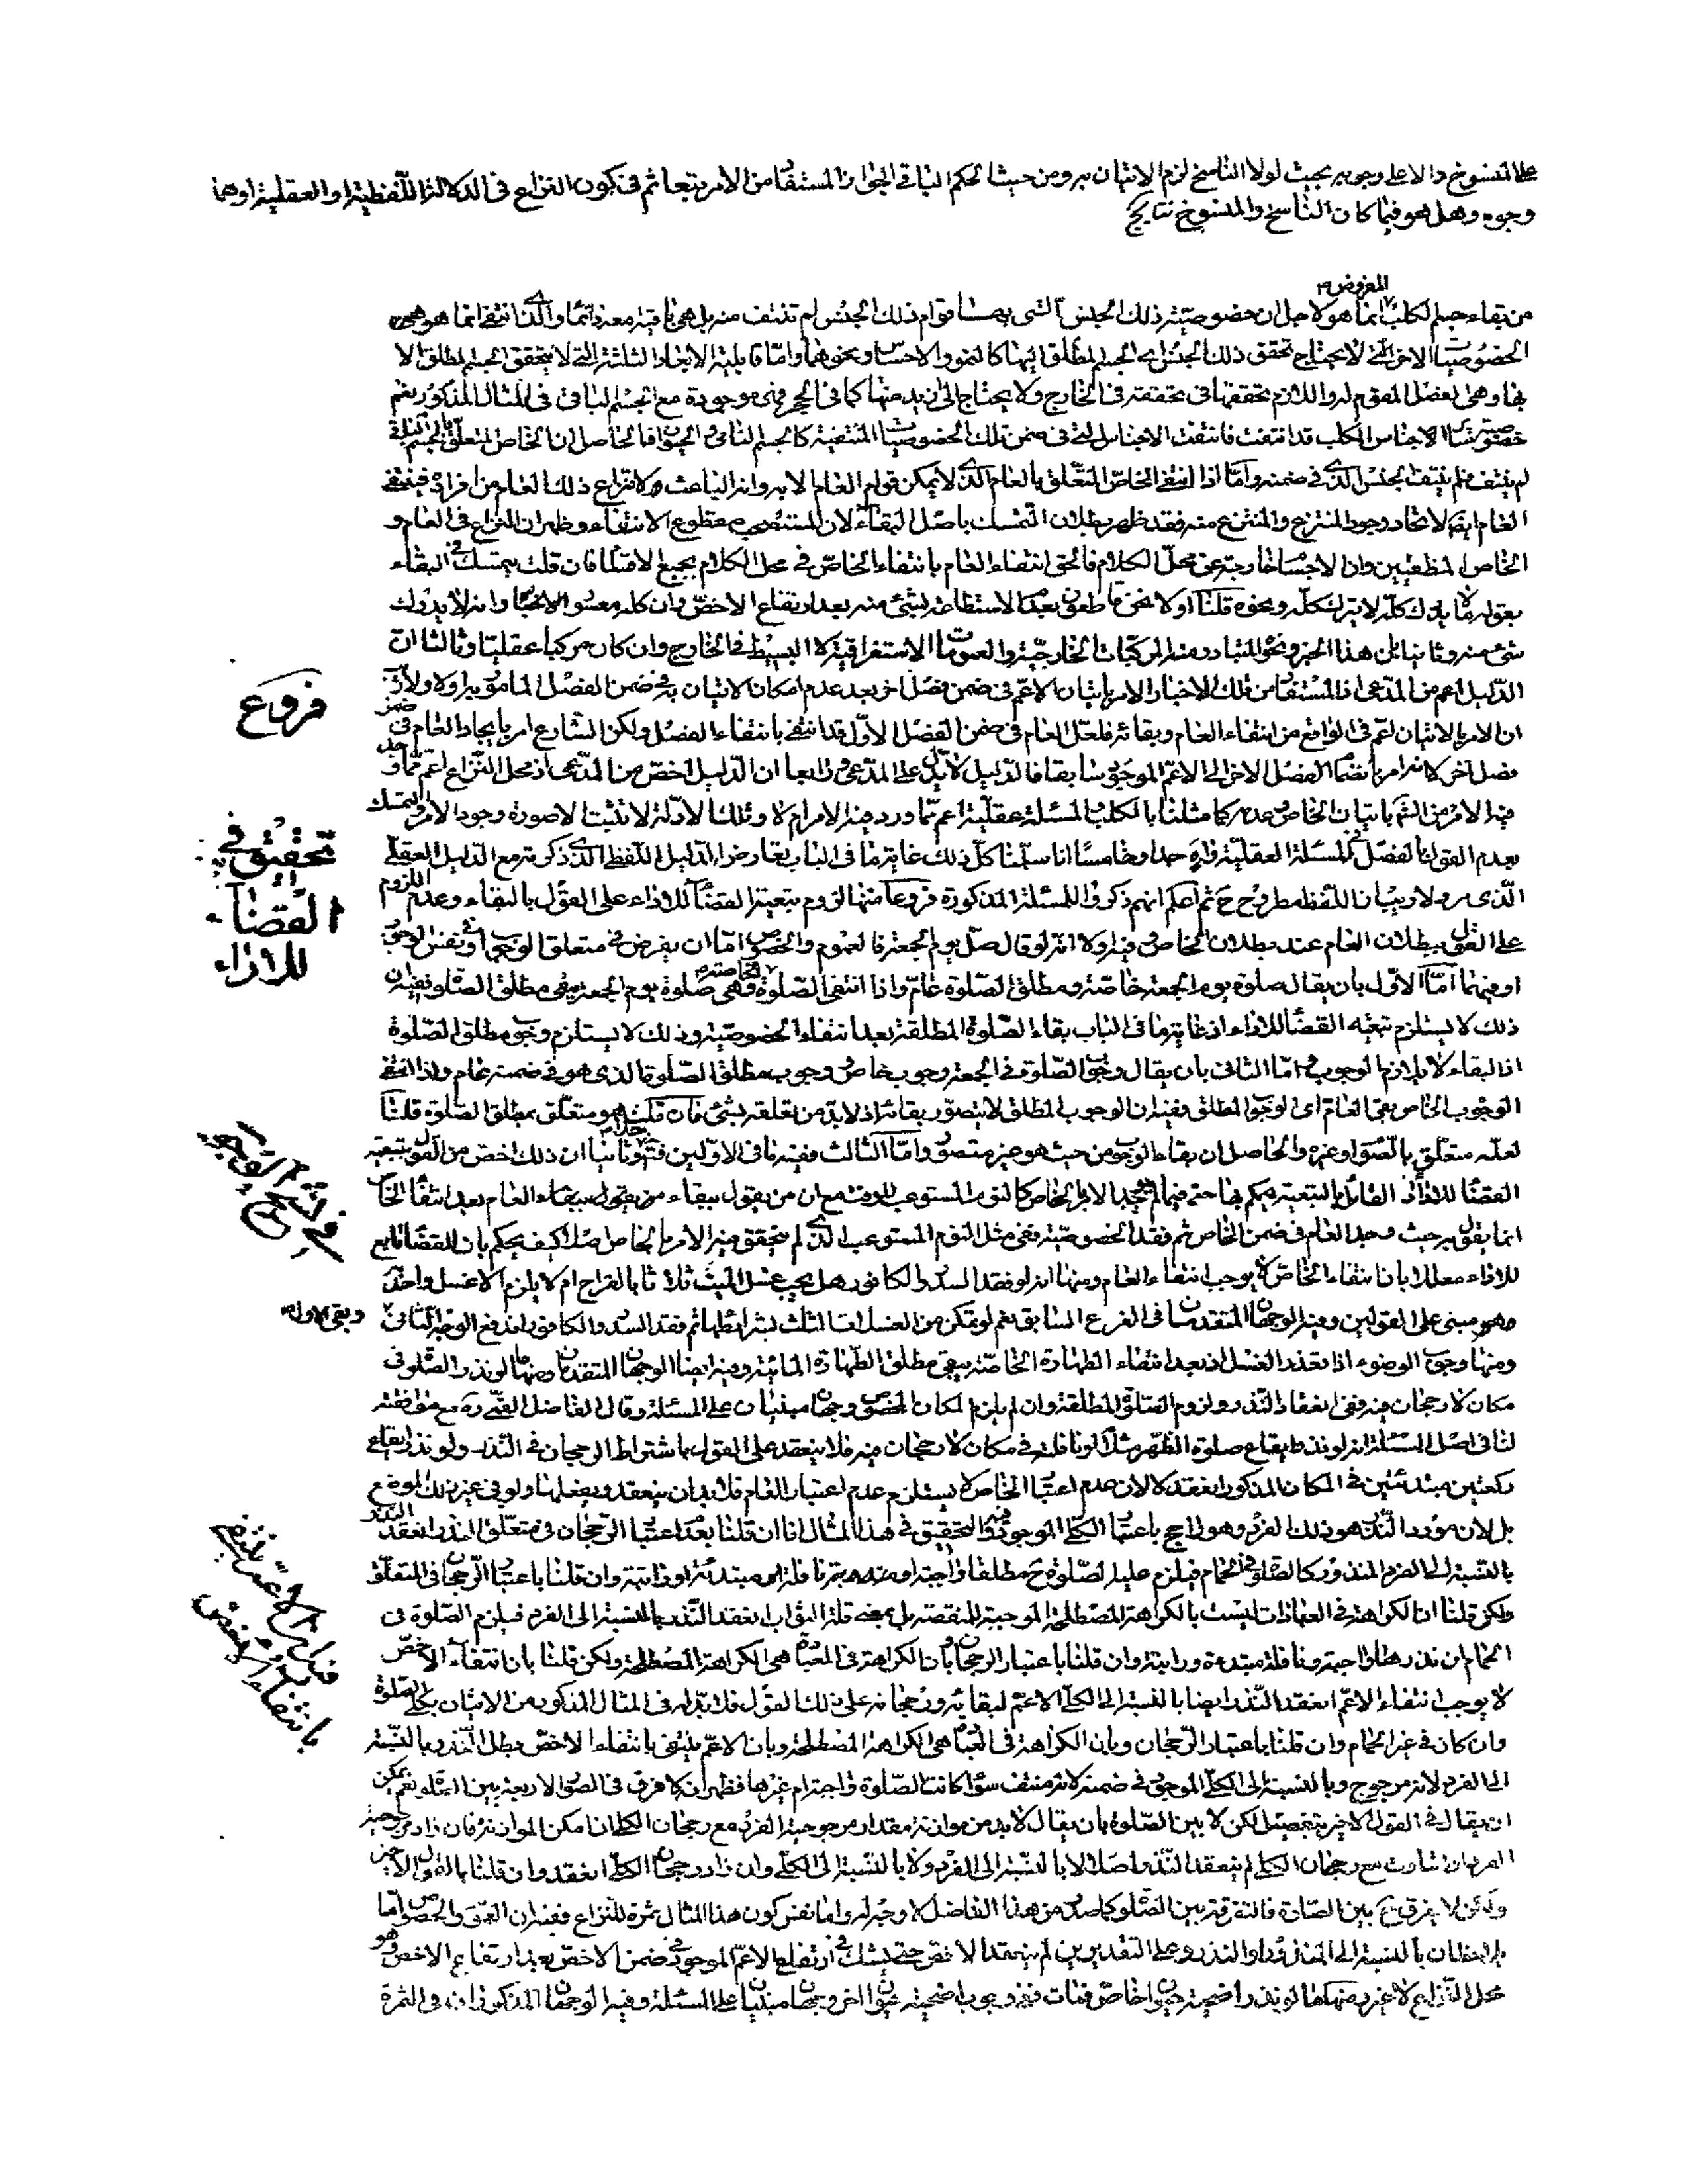 على المنسوخ دالا على وجوبه بحيث لولا الناسخ لزم الاتيان به ومن حيث الحكم الباقى الجواز المستفاد من الامر تبعا ثم فى كون النزاع فى الدلالة اللفظية او العقلية او هما
وجوه وهل هو فيما كان الناسخ والمنسوخ
المفروض
من بقاء جسم الكلب انما هو لاجل ان خصوصية ذلك الجنس التى بها قوام ذلك الجنس لم تنتف منه بل هى باقية معه دائما والذى انتفى انما هو
الخصوصيات الاخر التى لا يحتاج تحقق ذلك الجنس اى الجسم المطلق اليها كالنمو والاحساس ونحوهما واما قابلية الابعاد الثلثة التى لا يتحقق الجسم المطلق الا
بها وهى الفصل المقوم له واللازم تحققها فى تحققه فى الخارج ولا يحتاج الى ازيد منها كما فى الحجر فهى موجودة مع الجسم الباقى فى المثال المذكور نعم
خصوصية الاجناس الكلب قد انتفت فانتفت الاجناس التى فى ضمن تلك الخصوصيات المنتفية كالجسم النامى و الحيوان فالحاصل ان الخاص المتعلق بالجسم الباقى
لم ينتف فلم ينتف الجنس الذى فى ضمنه واما اذا انتفى الخاص المتعلق بالعام الذى لا يمكن قوام العام الا به وانه الباعث لانتزاع ذلك العام من افراده فينتفى
العام ايضا لاتحاد وجود المنتزع والمنتزع منه فقد ظهر بطلان التمسك باصل البقاء لان المستصحب مقطوع الانتفاء وظهر ان النزاع فى العام و
الخاص المنطقيين وان الاجناس خارجة عن محل الكلام فالحق انتفاء العام بانتفاء الخاص فى محل الكلام بجميع الاقسام فان قلت يتمسك فى البقاء
بقوله ما لا يدرك كله لا يترك كله ونحوه قلنا اولا
شئ منه وثانيا ان هذا الخبر ونحوه المتبادر منه المركبات الخارجية والعمومات الاستغراقية لا البسيط فى الخارج وان كان مركبا عقليا وثالثا ان
الدليل اعم من المدعى اذ المستفاد من تلك الاخبار الامر باتيان الاعم فى ضمن فصل اخر بعد عدم امكان الاتيان به فى ضمن الفصل المامور به اولا ولازم
ان الامر بالاتيان اعم فى الواقع من انتفاء العام وبقائه فلعل العام فى ضمن الفصل الاول قد انتفى بانتفاء الفصل ولكن الشارع امر بايجاد العام فى ضمن
فصل اخر كانه امر بانضمام الفصل الاخر الى الاعم الموجود سابقا فالدليل لا يدل على المدعى ورابعا ان الدليل اخص من المدعى اذ محل النزاع اعم مما وجد
فيه الامر من الشرع باتيان الخاص وعدمه كما مثلنا بالكلب المسئلة عقلية اعم مما ورد فيه الامر ام لا وتلك الادلة لا تثبت الا صورة وجود الامر والتمسك
بعدم القول بالفصل فى المسئلة العقلية واه جدا وخامسا انا سلمنا كل ذلك غاية ما فى الباب تعارض الدليل اللفظى الذى ذكرته مع الدليل العقلى
الذى مر ولا ريب ان اللفظ مطروح ح ثم اعلم انهم ذكروا للمسئلة المذكورة فروعا منها لزوم تبعية القضاء للاداء على القول بالبقاء وعدم اللزوم
على القول ببطلان العام عند بطلان الخاص وفيه اولا انه لو قال صل يوم الجمعة فالعموم والخصوص اما ان يفرض فى متعلق الوجوب او فى نفس الوجوب
او فيهما اما الاول بان يقال صلوة يوم الجمعة خاصة ومطلق الصلوة عام واذا انتفى الصلوة الخاصة وهى صلوة يوم الجمعة بقى مطلق الصلوة ففيه ان
ذلك لا يستلزم تبعية القضاء للاداء اذ غاية ما فى الباب بقاء الصلوة المطلقة بعد انتفاء الخصوصية وذلك لا يستلزم وجوب مطلق الصلوة
اذ البقاء لا يلازم الوجوب واما الثانى بان يقال وجوب الصلوة فى الجمعة وجوب خاص ووجوب مطلق الصلوة الذى هو فى ضمنه عام واذا انتفى
الوجوب الخاص بقى العام اى الوجوب المطلق ففيه ان الوجوب المطلق لا يتصور بقائه اذ لا بد من تعلقه بشئ فان قلت هو متعلق بمطلق الصلوة قلنا
لعله متعلق بالصوم او غيره والحاصل ان بقاء الوجوب من حيث هو غير متصور واما الثالث ففيه ما فى الاولين وثانيا ان ذلك اخص من القول بتبعية
القضاء للاداء اذ القائل بالتبعية يحكم بها حتى فيما لم يوجد الامر الخاص كالنوم المستوعب للوقت مع ان من يقول ببقاء العام بعد انتفاء الخاص
انما يقول به حيث وجد العام فى ضمن الخاص ثم فقد الخصوصية ففى مثل النوم المستوعب الذى لم يتحقق فيه الامر بالخاص اصلا كيف يحكم بان القضاء تابع
للاداء معللا بان انتفاء الخاص لا يوجب انتفاء العام ومنها انه لو فقد السدر والكافور هل يجب غسل الميت ثلاثا بالقراح ام لا يلزم الا غسل واحد
وهو مبنى على القولين وفيه الوجهان المتقدمان فى الفرع السابق نعم لو تمكن من الغسل الثالث بشرائطها ثم فقد السدر والكافور اندفع الوجه الثانى وبقى الاول
ومنها وجوب الوضوء اذا تعذر الغسل اذ بعد انتفاء الطهارة الخاصة يبقى مطلق الطهارة المائية وفيه ايضا الوجهان المتقدمان ومنها ما لو نذر الصلوة فى
مكان لا رجحان فيه ففى انعقاد النذر ولزوم الصلوة المطلقة وان لم يلزم المكان المخصوص وجهان مبنيان على المسئلة وقال الفاضل القمى ره مع موافقته
لنا فى اصل المسئلة انه لو نذر ايقاع صلوة الظهر مثلا او نافلته فى مكان لا رجحان فيه فلا ينعقد على القول باشتراط الرجحان فى النذر ولو نذر ايقاع
ركعتين مبتدئتين فى المكان المذكور انعقد لا لان عدم اعتبار الخاص لا يستلزم عدم اعتبار العام فلا بد ان ينعقد ويفعلها ولو فى غير ذلك الموضع
بل لان مورد النذر هو ذلك الفرد وهو راجح باعتبار الكلى الموجود فيه والتحقيق فى هذا المثال انا ان قلنا بعدم اعتبار الرجحان فى متعلق النذر انعقد النذر
بالنسبة الى الفرد المنذور كالصلوة فى الحمام فيلزم عليه الصلوة ح مطلقا واجبة او نافلة مبتدئة او راتبة وان قلنا باعتبار الرجحان فى المتعلق
ولكن قلنا ان الكراهة فى العبادات ليست بالكراهة المصطلحة الموجبة للمنقصة بل بمعنى قلة الثواب انعقد النذر بالنسبة الى الفرد فيلزم الصلوة فى
الحمام ان نذرها واجبة ونافلة مبتدئة وراتبة وان قلنا باعتبار الرجحان وبان الكراهة فى العبادة هى الكراهة المصطلحة ولكن قلنا بان انتفاء الاخص
لا يوجب انتفاء الاعم انعقد النذر ايضا بالنسبة الى الكلى الاعم لبقائه ورجحانه على ذلك القول فلا بد له فى المثال المذكور من الاتيان بكلى الصلوة
وان كان فى غير الحمام وان قلنا باعتبار الرجحان وبان الكراهة فى العبادة هى الكراهة المصطلحة وبان الاعم ينتفى بانتفاء الاخص بطل النذر بالنسبة
الى الفرد لانه مرجوح وبالنسبة الى الكلى الموجود فى ضمنه لانه منتف سواء كانت الصلوة واجبة ام غيرها فظهر ان لا فرق فى الصور الاربعة بين الصلوة نعم يمكن
ان يقال فى القول الاخير بتفصيل لكن لا بين الصلوة بان يقال لا بد من موازنة مقدار مرجوحية الفرد مع رجحان الكلى ان امكن الموازنة فان زاد مرجوحية
الفرد او تساوت مع رجحان الكلى لم ينعقد النذر اصلا لا بالنسبة الى الفرد ولا بالنسبة الى الكلى وان زاد رجحان الكلى انعقد وان قلنا بالقول الاخير
ولكن لا يفرق ح بين الصلوة فالتفرقة بين الصلوة كما صدر من هذا الفاضل لا وجه له واما نفس كون هذا المثال ثمرة للنزاع ففيه ان العموم والخصوص اما
يلاحظان بالنسبة الى المنذور او النذر وعلى التقديرين لم ينعقد الاخص حتى يشك فى ارتفاع الاعم الموجود فى ضمن الاخص بعد ارتفاع الاخص وهو
محل النزاع لا غير ومنها ما لو نذر اضحية حيوان خاص فمات ففى وجوب اضحية حيوان اخر وجهان مبنيان على المسئلة وفيه الوجهان المذكوران فى الثمرة
فروع
تحقيق فى
القضاء
للاداء
بانتفاء